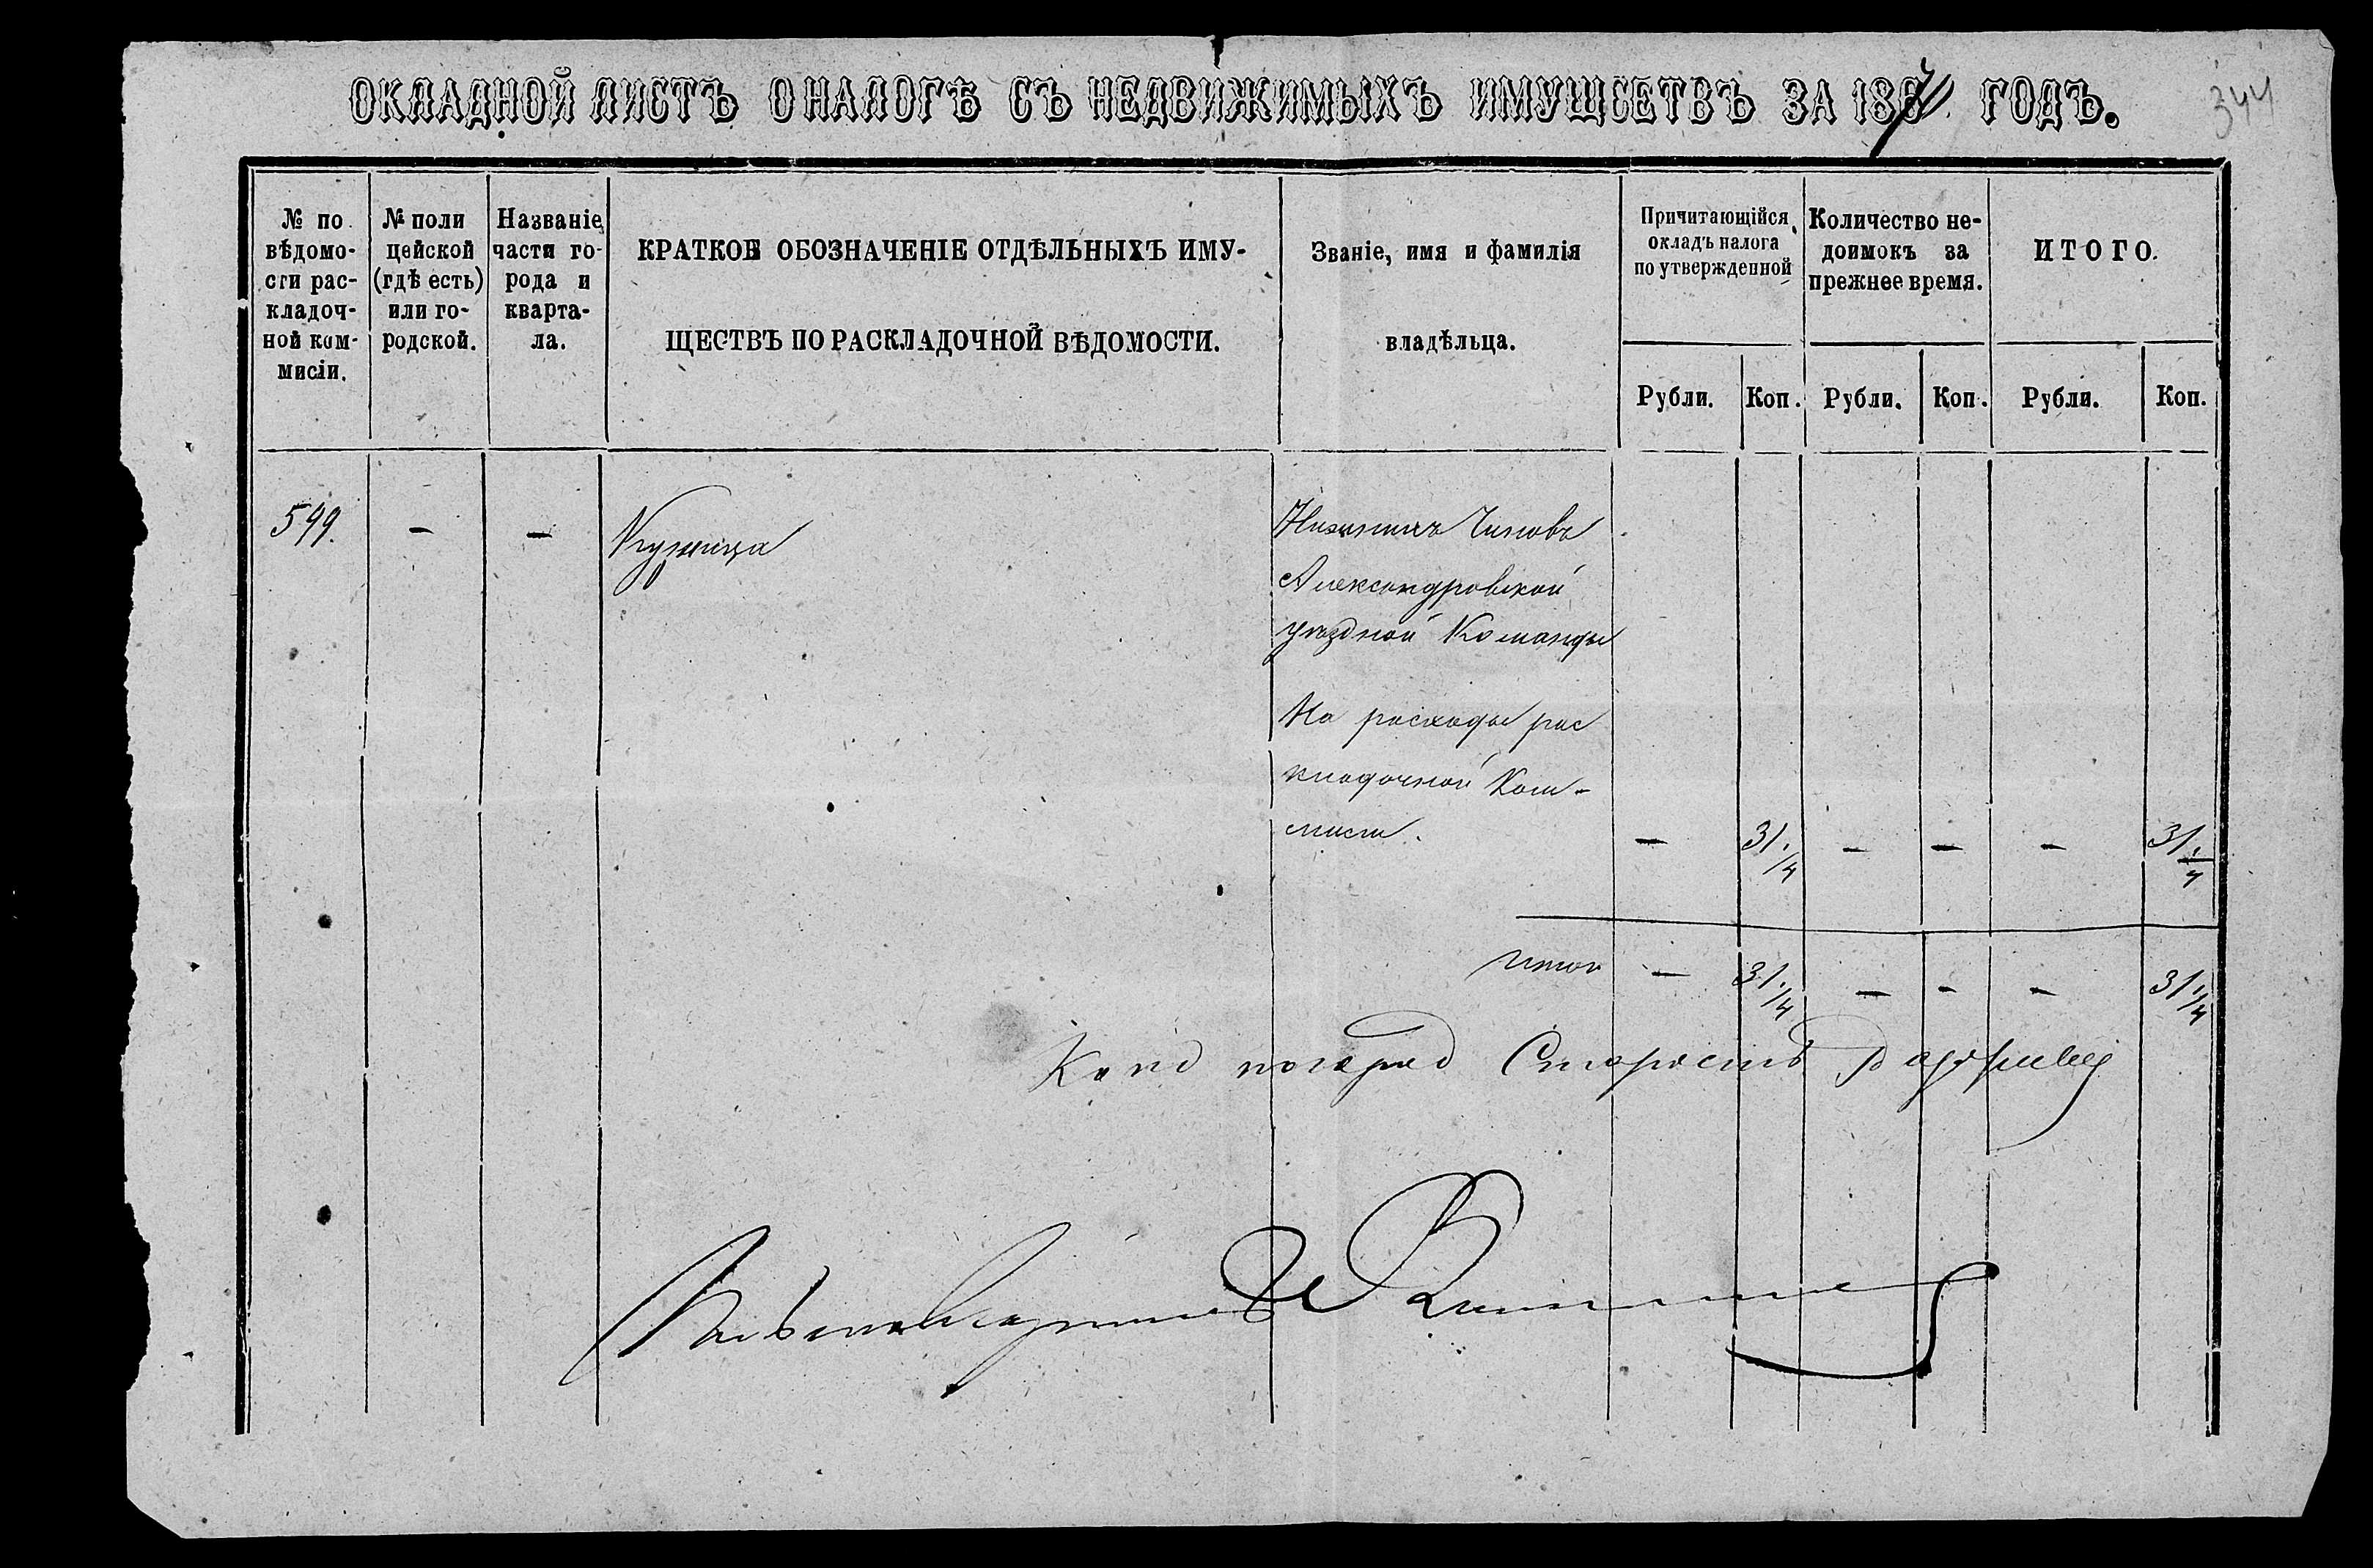 ОКЛАДНОЙ ЛИСТЪ О НАЛОГѢ СЪ НЕДВИЖИМЫХЪ ИМУЩЕСТВЪ ЗА 1870 ГОДЪ.
344
№ по
вѣдомо-
сти рас-
кладоч-
ной ком-
мисіи.
№ поли
цейской
(гдѣ есть)
или го-
родской.
Названіе
части го-
рода и
кварта-
ла.
КРАТКОЕ ОБОЗНАЧЕНІЕ ОТДѢЛЬНЫХЪ ИМУ-
ЩЕСТВЪ ПО РАСКЛАДОЧНОЙ ВѢДОМОСТИ.
Званіе, имя и фамилія
владѣльца.
Причитающійся
окладъ налога
по утвержденной
Количество не-
доимокъ за
прежнее время.
ИТОГО.
Рубли. Коп. Рубли. Коп. Рубли. Коп.
599. — — Кузница
Нижнихъ Чиновъ
Александровской
уѣздной Команды
На расходы рас
кладочной Ком-
мисіи. — 31/4 — — — 3 1/4
Итого — 3 1/4 — — — 3 1/4
Старостѣ